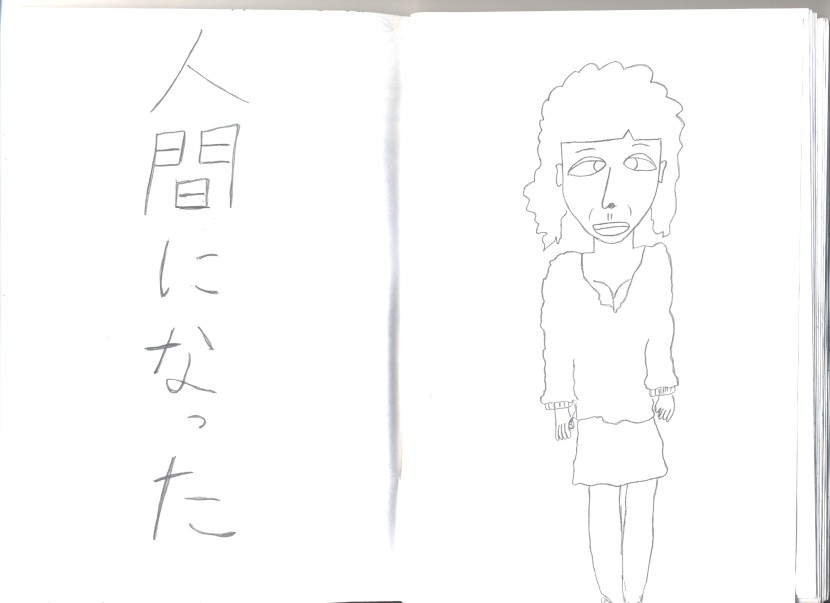 人間になった